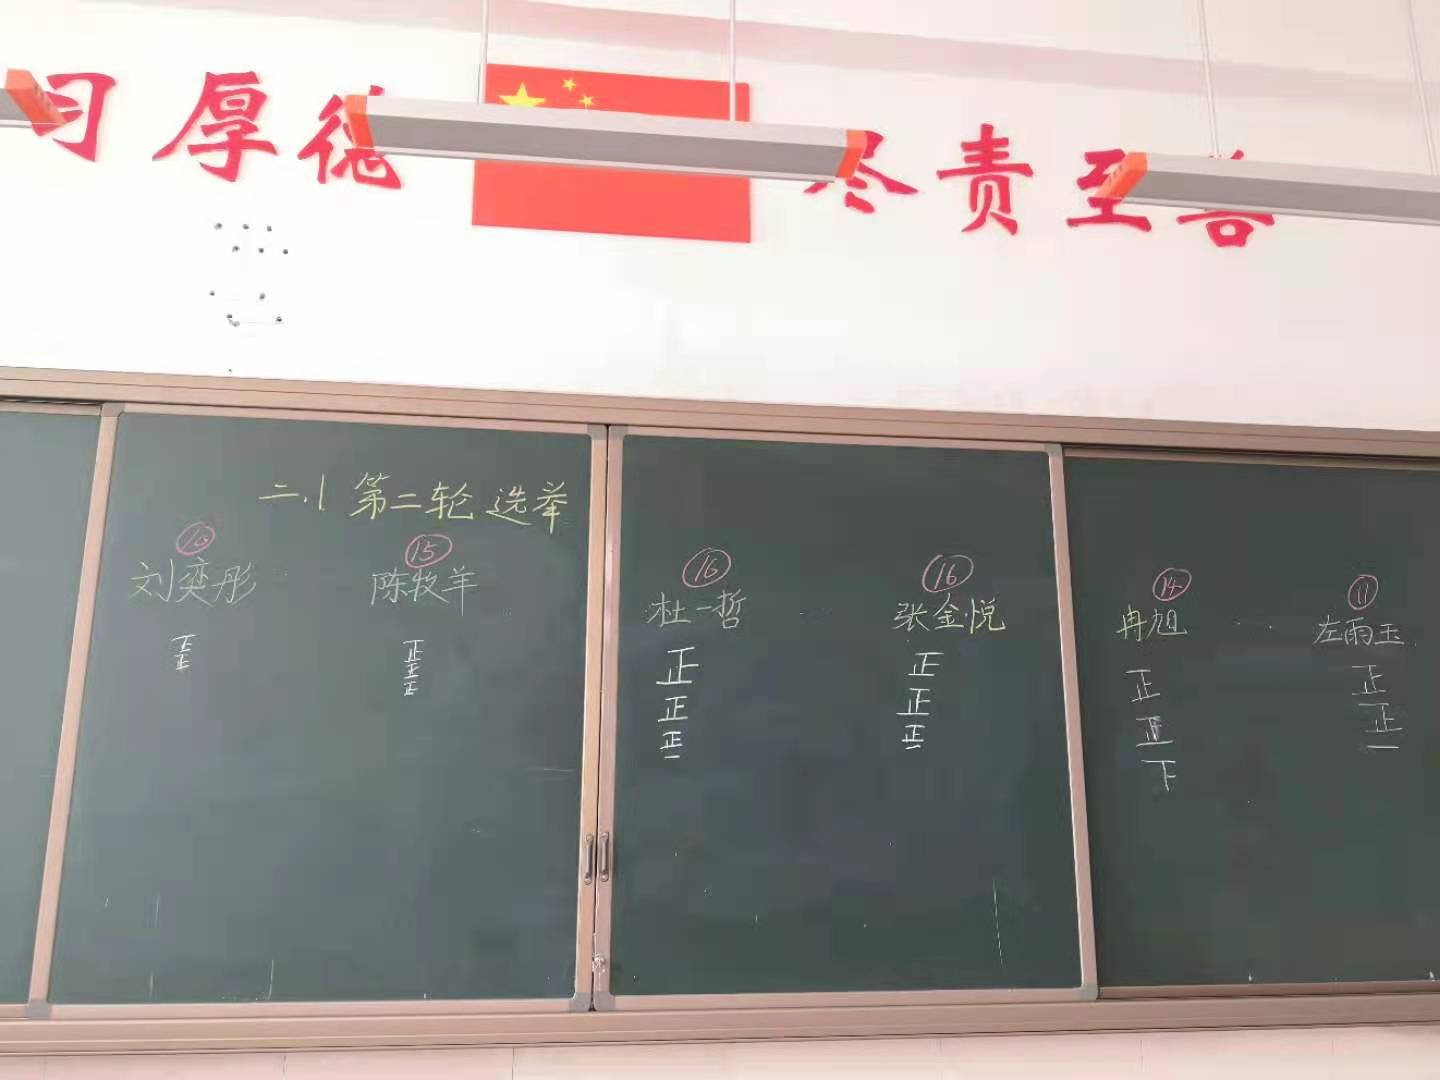 习厚德 尽责至善
二.1 第二轮选举
10 15 16 16 14 11
刘奕彤 陈牧羊 杜一哲 张金悦 冉旭 左雨玉
正 正 正 正 正 正
正 正 正 正 正 正
正 正 正 下 一
一 一